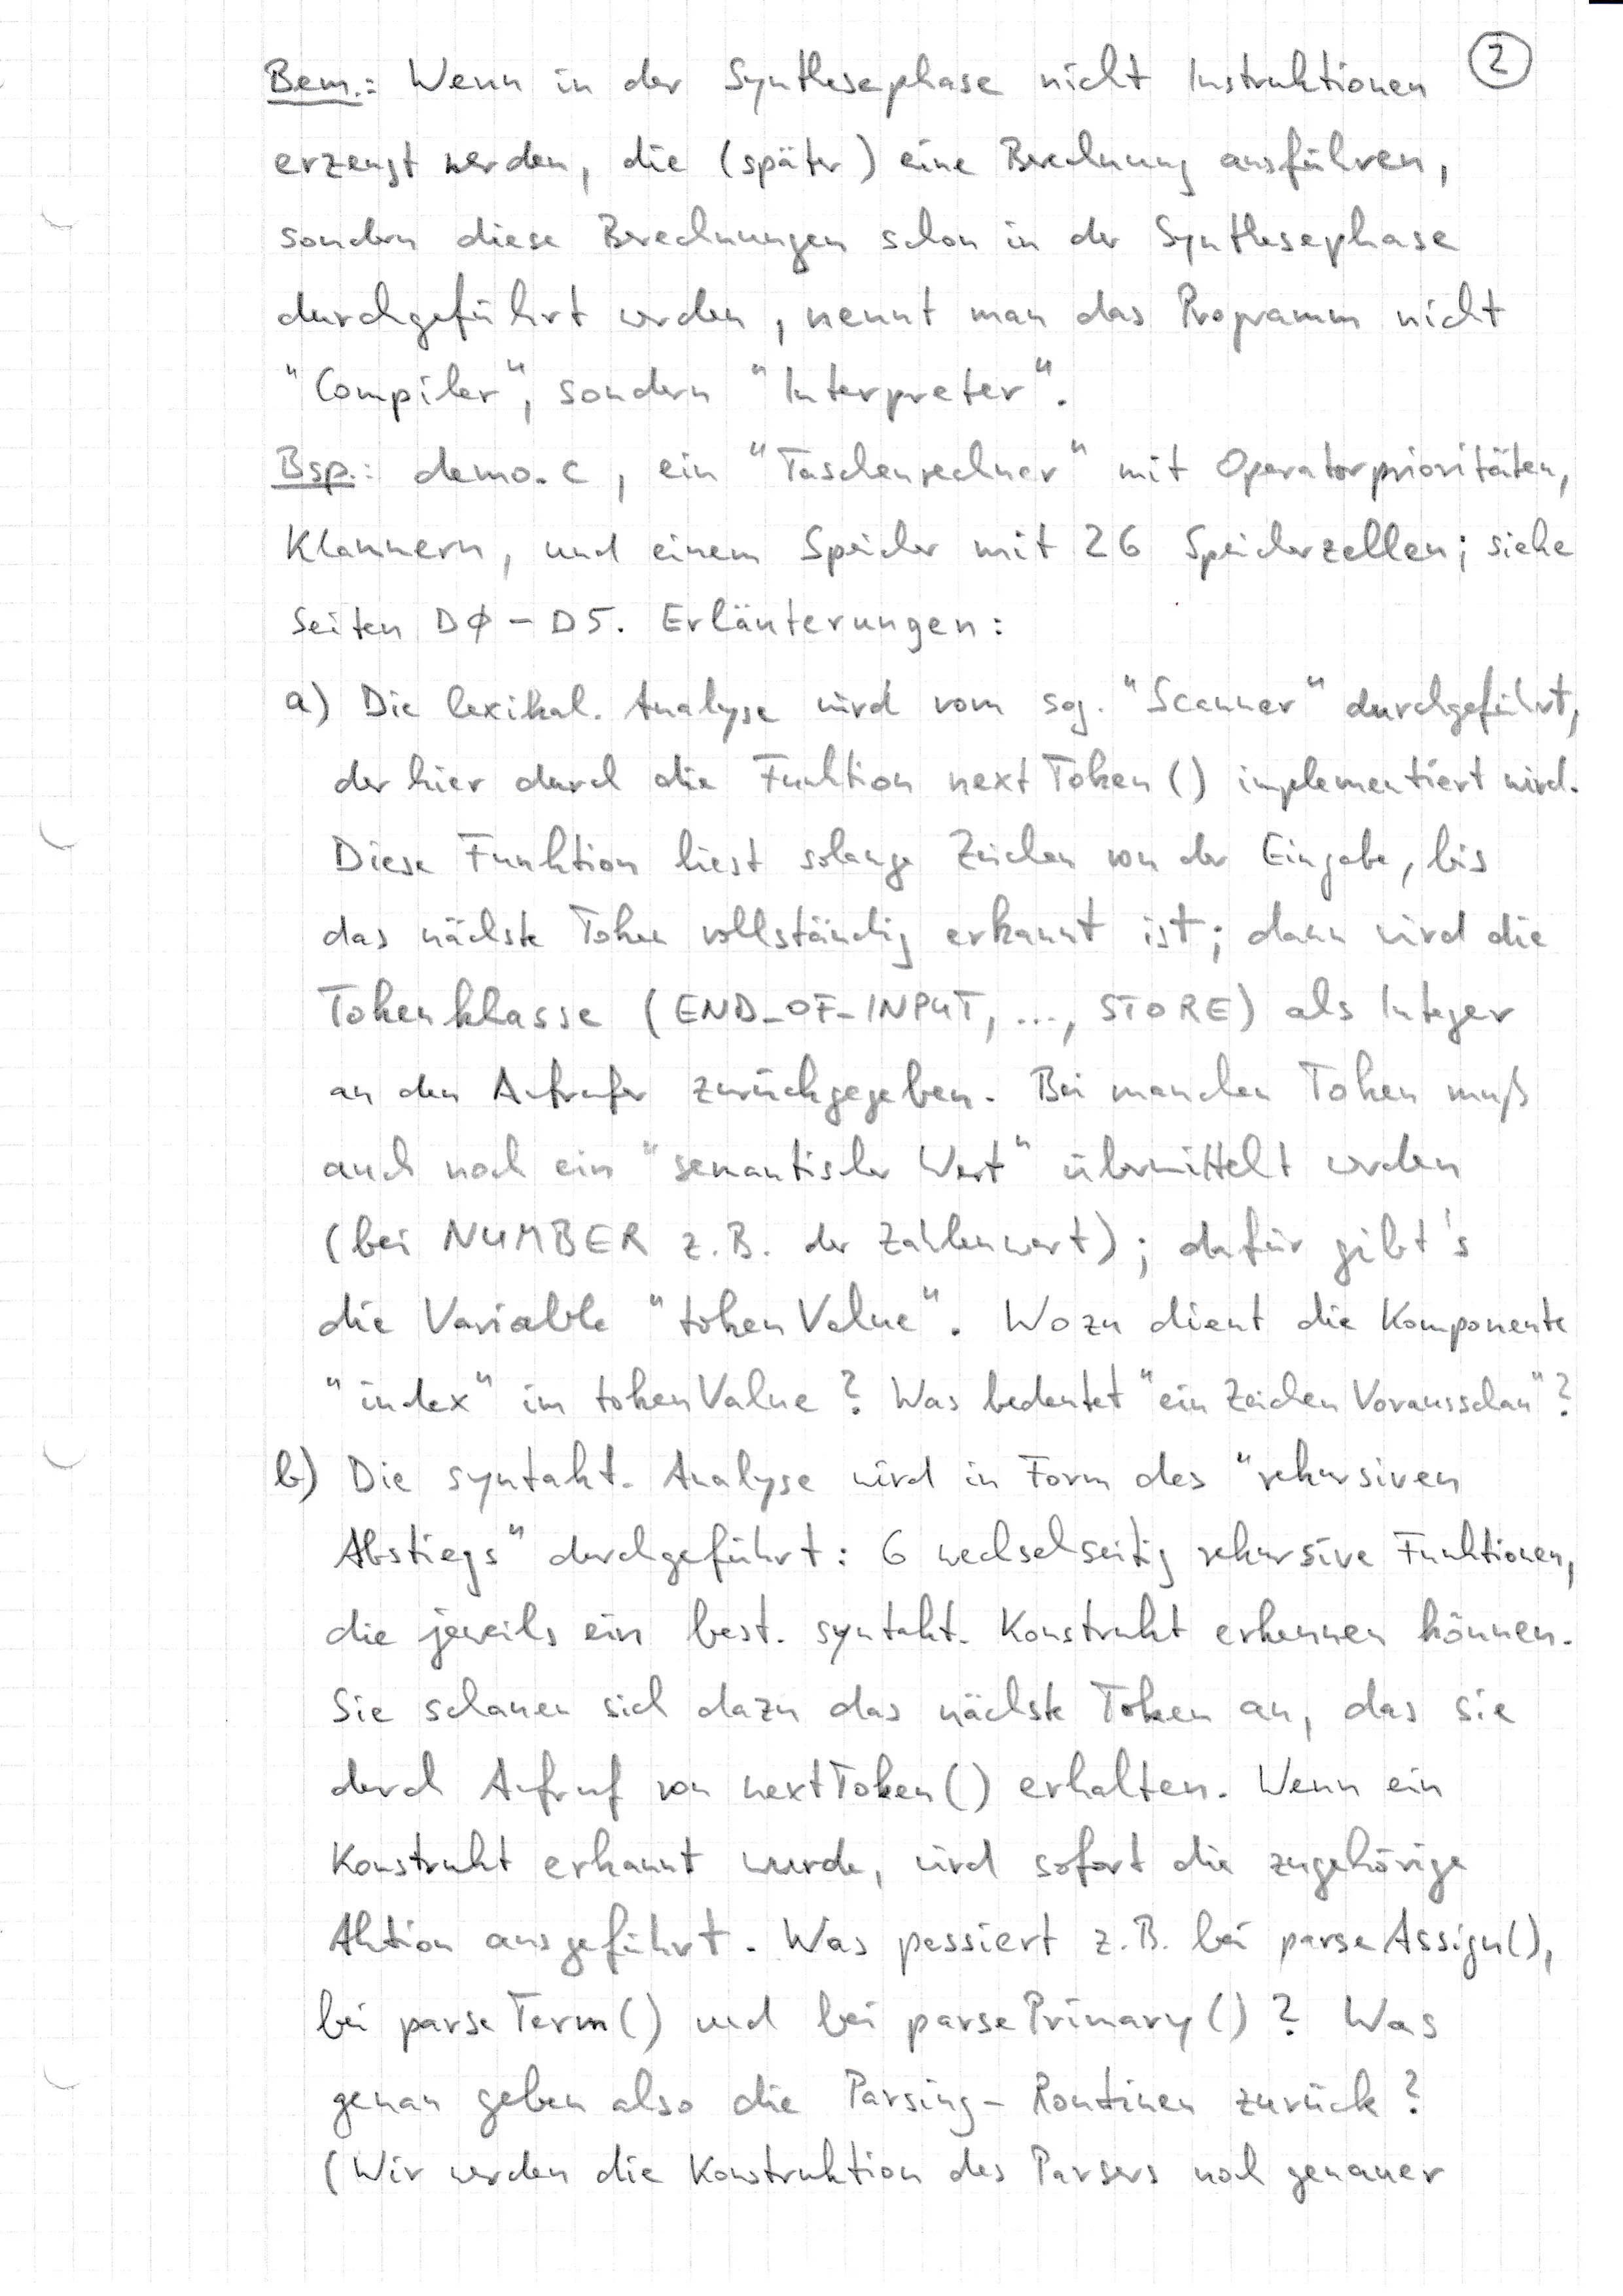 Bem.: Wenn in der Synthesephase nicht Instruktionen ②
erzeugt werden, die (später) eine Berechnung ausführen,
sondern diese Berechnungen schon in der Synthesephase
durchgeführt werden, nennt man das Programm nicht
"Compiler", sondern "Interpreter".
Bsp.: demo.c, ein "Taschenrechner" mit Operatorprioritäten,
Klammern, und einem Speicher mit 26 Speicherzellen; siehe
Seiten DØ - D5. Erläuterungen:
a) Die lexikal. Analyse wird vom sog. "Scanner" durchgeführt,
der hier durch die Funktion nextToken() implementiert wird.
Diese Funktion liest solange Zeichen von der Eingabe, bis
das nächste Token vollständig erkannt ist; dann wird die
Tokenklasse (END_OF_INPUT, ..., STORE) als Integer
an den Aufrufer zurückgegeben. Bei manchen Token muß
auch noch ein "semantischer Wert" übermittelt werden
(bei NUMBER z.B. der Zahlenwert); dafür gibt's
die Variable "tokenValue". Wozu dient die Komponente
"index" im tokenValue? Was bedeutet "ein Zeichen Vorausschau"?
b) Die syntakt. Analyse wird in Form des "rekursiven
Abstiegs" durchgeführt: 6 wechselseitig rekursive Funktionen,
die jeweils ein best. syntakt. Konstrukt erkennen können.
Sie schauen sich dazu das nächste Token an, das sie
durch Aufruf von nextToken() erhalten. Wenn ein
Konstrukt erkannt wurde, wird sofort die zugehörige
Aktion ausgeführt. Was passiert z.B. bei parseAssign(),
bei parseTerm() und bei parsePrimary()? Was
genau geben also die Parsing-Routinen zurück?
(Wir werden die Konstruktion des Parsers noch genauer